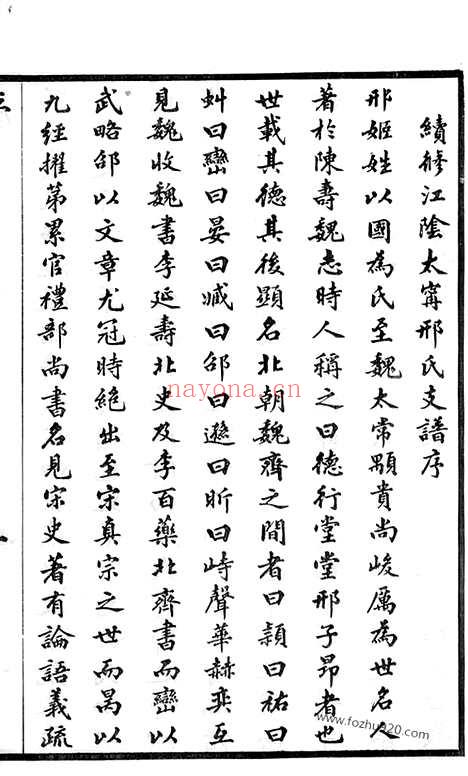 續修江陰太甯邢氏支譜序
邢姬姓以國為氏至魏太常顒貴尚峻厲為世名人
著於陳壽魏志時人稱之曰德行堂堂邢子昂者也
世載其德其後顯名北朝魏齊之間者曰穎曰祐曰
虯曰巒曰晏曰臧曰邵曰遜曰昕曰峙聲華赫奕互
見魏收魏書李延壽北史及李百藥北齊書而巒以
武略邵以文章尤冠時絶出至宋真宗之世而昺以
九經擢第累官禮部尚書名見宋史著有論語義疏
nayona.cn
www.fozhu920.com